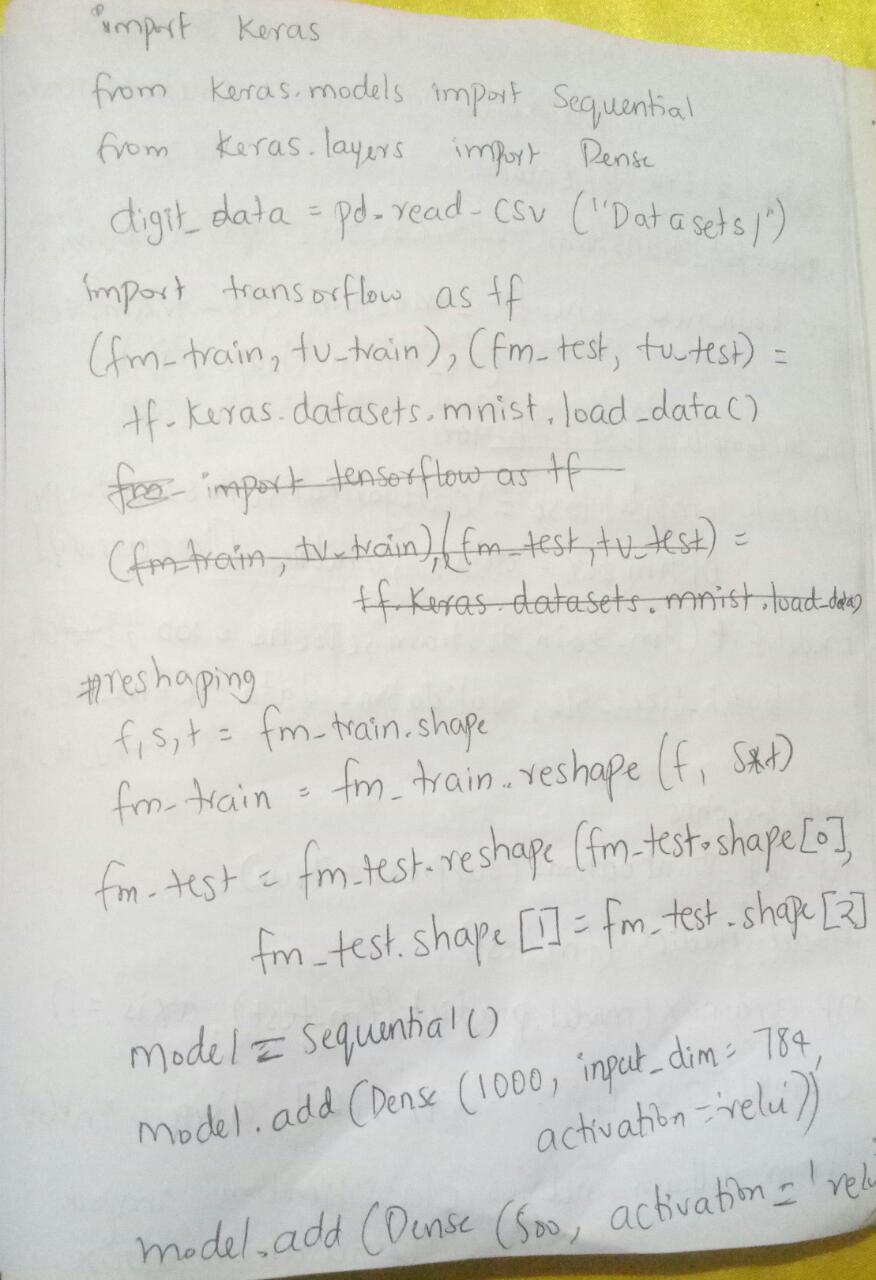 import Keras
from keras.models import Sequential
from keras.layers import Dense
digit_data = pd.read-csv ("Datasets/")
import transorflow as tf
(fm_train, tv_train), (fm_test, tv_test) =
tf.keras.datasets.mnist.load_data()
import tensorflow as tf
(fm_train, tv_train), (fm_test, tv_test) =
tf.keras.datasets.mnist.load_data()
#reshaping
f, s, t = fm_train.shape
fm_train = fm_train.reshape (f, s*t)
fm_test = fm_test.reshape (fm_test.shape[0],
fm_test.shape [1] = fm_test.shape [2]
model = Sequential()
model.add (Dense (1000, input_dim = 784,
activation = 'relu'))
model.add (Dense (500, activation = 'relu